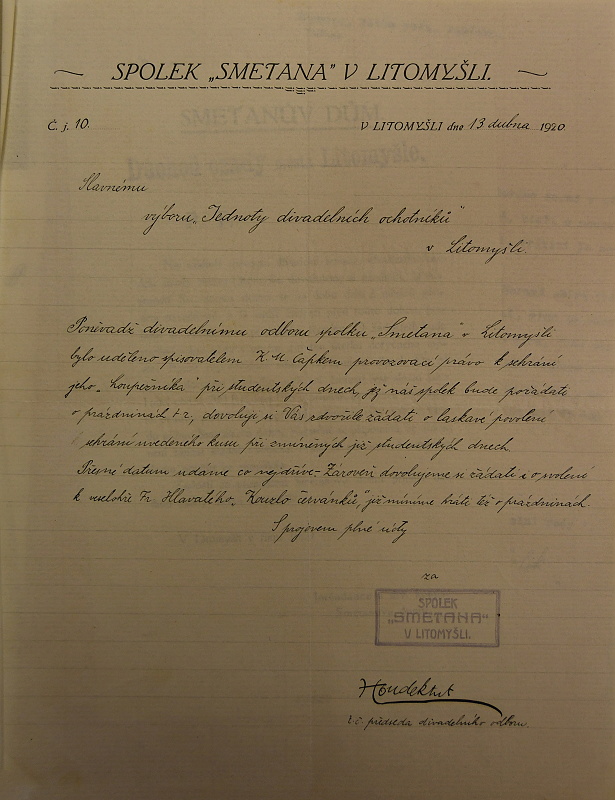 SPOLEK „SMETANA" V LITOMYŠLI.
Č. j. 10.
V LITOMYŠLI dne 13 dubna 1920
Slavnému
výboru „Jednoty divadelních ochotníků"
v Litomyšli.
Poněvadž divadelnímu odboru spolku „Smetana" v Litomyšli
bylo uděleno spisovatelem K. M. Čapkem provozovací právo k sehrání
jeho „Loupežníka" při studentských dnech, jež náš spolek bude pořádati
o prázdninách t. r., dovoluje si Vás zdvořile žádati o laskavé povolení
sehrání uvedeného kusu při zmíněných již studentských dnech.
Přesné datum udáme co nejdříve. Zároveň dovolujeme si žádati i o svolení
k veselohře Fr. Hlavatého „Kouzlo červánků", již míníme hráti též o prázdninách.
S projevem plné úcty
za
SPOLEK
„SMETANA"
V LITOMYŠLI.
t. č. předseda divadelního odboru.
SMETANŮV DŮM